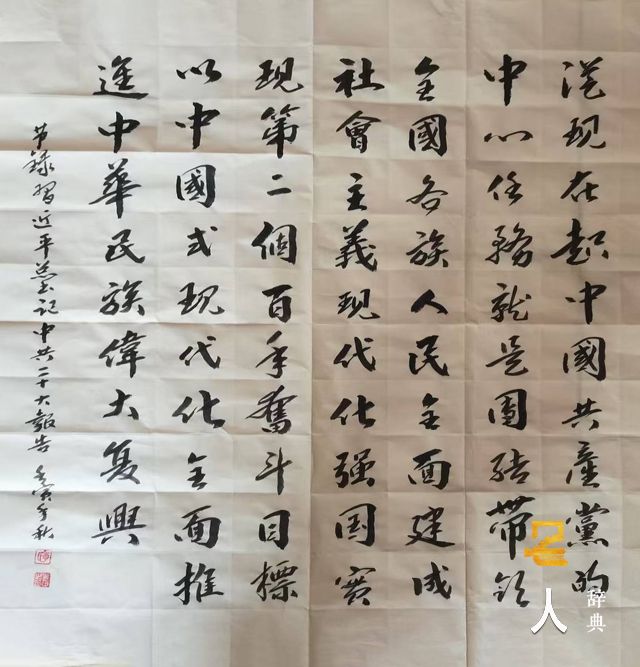 從現在起中國共產黨的
中心任務就是團結帶領
全國各族人民全面建成
社會主義現代化强国實
現第二個百年奮斗目標
以中國式现代化全面推
進中華民族偉大复興
节錄習近平总书记中共二十大報告 壬寅年秋
人
辞典